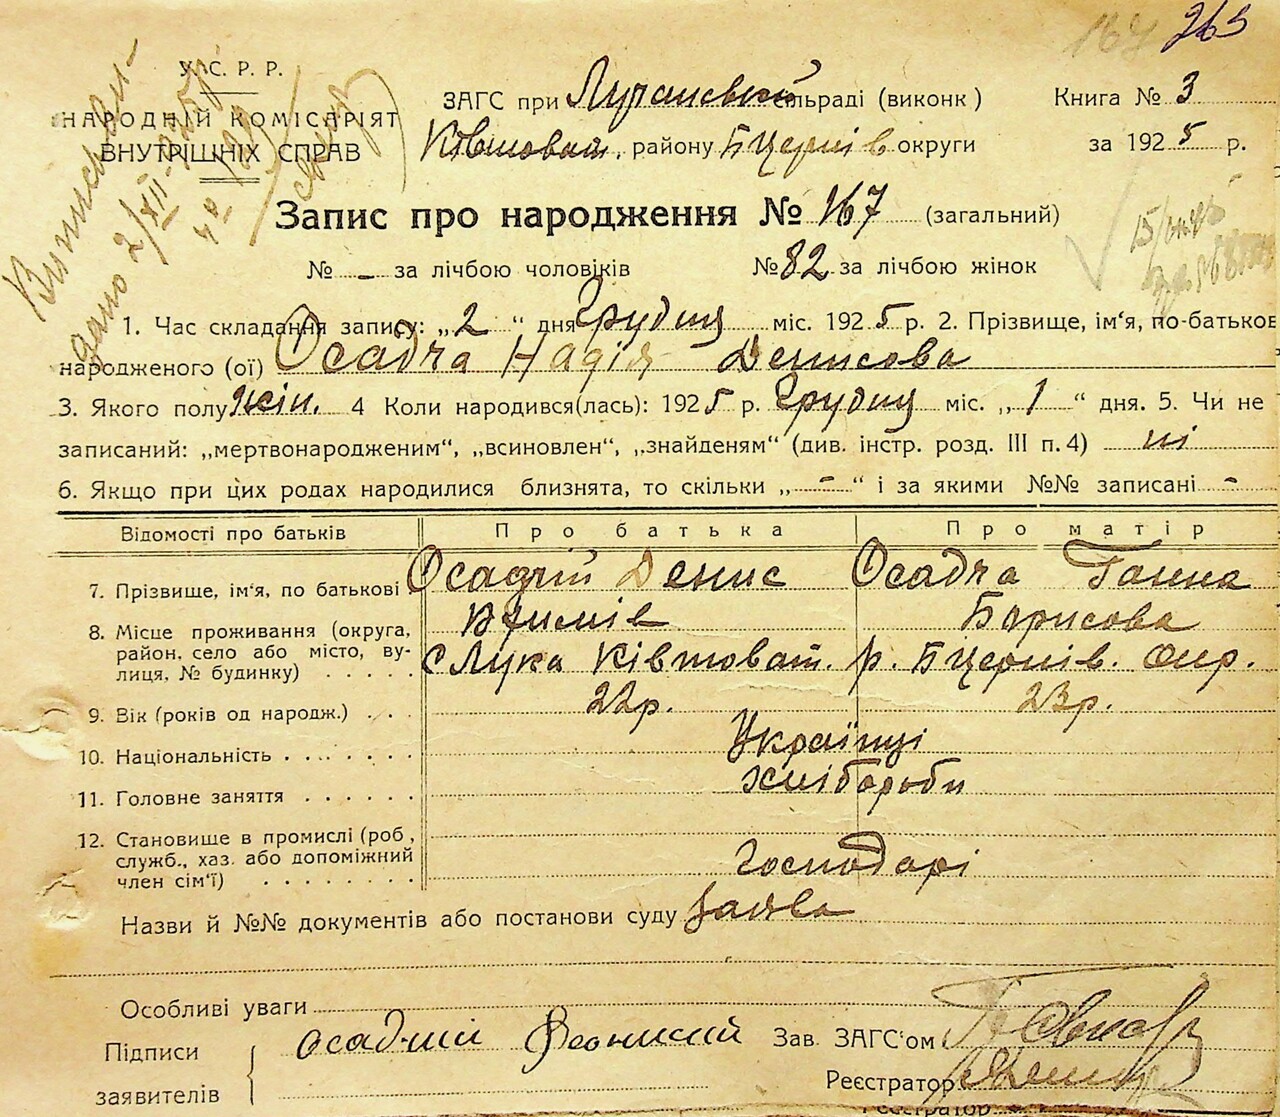 167 265
У. С. Р. Р.
НАРОДНІЙ КОМІСАРІЯТ
ВНУТРІШНІХ СПРАВ
ЗАГС при Лучанській сільраді (виконк)
Книга № 3
Ківшоват. району БЦерків округи
за 1925 р.
Запис про народження № 167 (загальний)
№ - за лічбою чоловіків №82 за лічбою жінок
1. Час складання запису: „2“ дня Грудня міс. 1925 р. 2. Прізвище, ім'я, по-батьков
народженого (ої) Осадча Надія Денисова
3. Якого полу жін. 4 Коли народився(лась): 1925 р. Грудня міс. „1“ дня. 5. Чи не
записаний: „мертвонародженим“, „всиновлен“, „знайденям“ (див. інстр. розд. III п. 4) ні
6. Якщо при цих родах народилися близнята, то скільки „-“ і за якими №№ записані -
Відомості про батьків Про батька Про матір
7. Прізвище, ім'я, по батькові Осадчій Денис Осадча Ганна
Борисова
8. Місце проживання (округа,
район, село або місто, ву-
лиця, № будинку) с Лука Ківшоват. р. БЦерків. окр.
9. Вік (років од народж.) 22р. 23р.
10. Національність Українці
11. Головне заняття хлібороби
12. Становище в промислі (роб,
служб., хаз. або допоміжний
член сім'ї) Господарі
Назви й №№ документів або постанови суду заява
Особливі уваги
Підписи Осадчий Деонисий Зав. ЗАГС'ом
заявителів
Реєстратор
Реєстратор